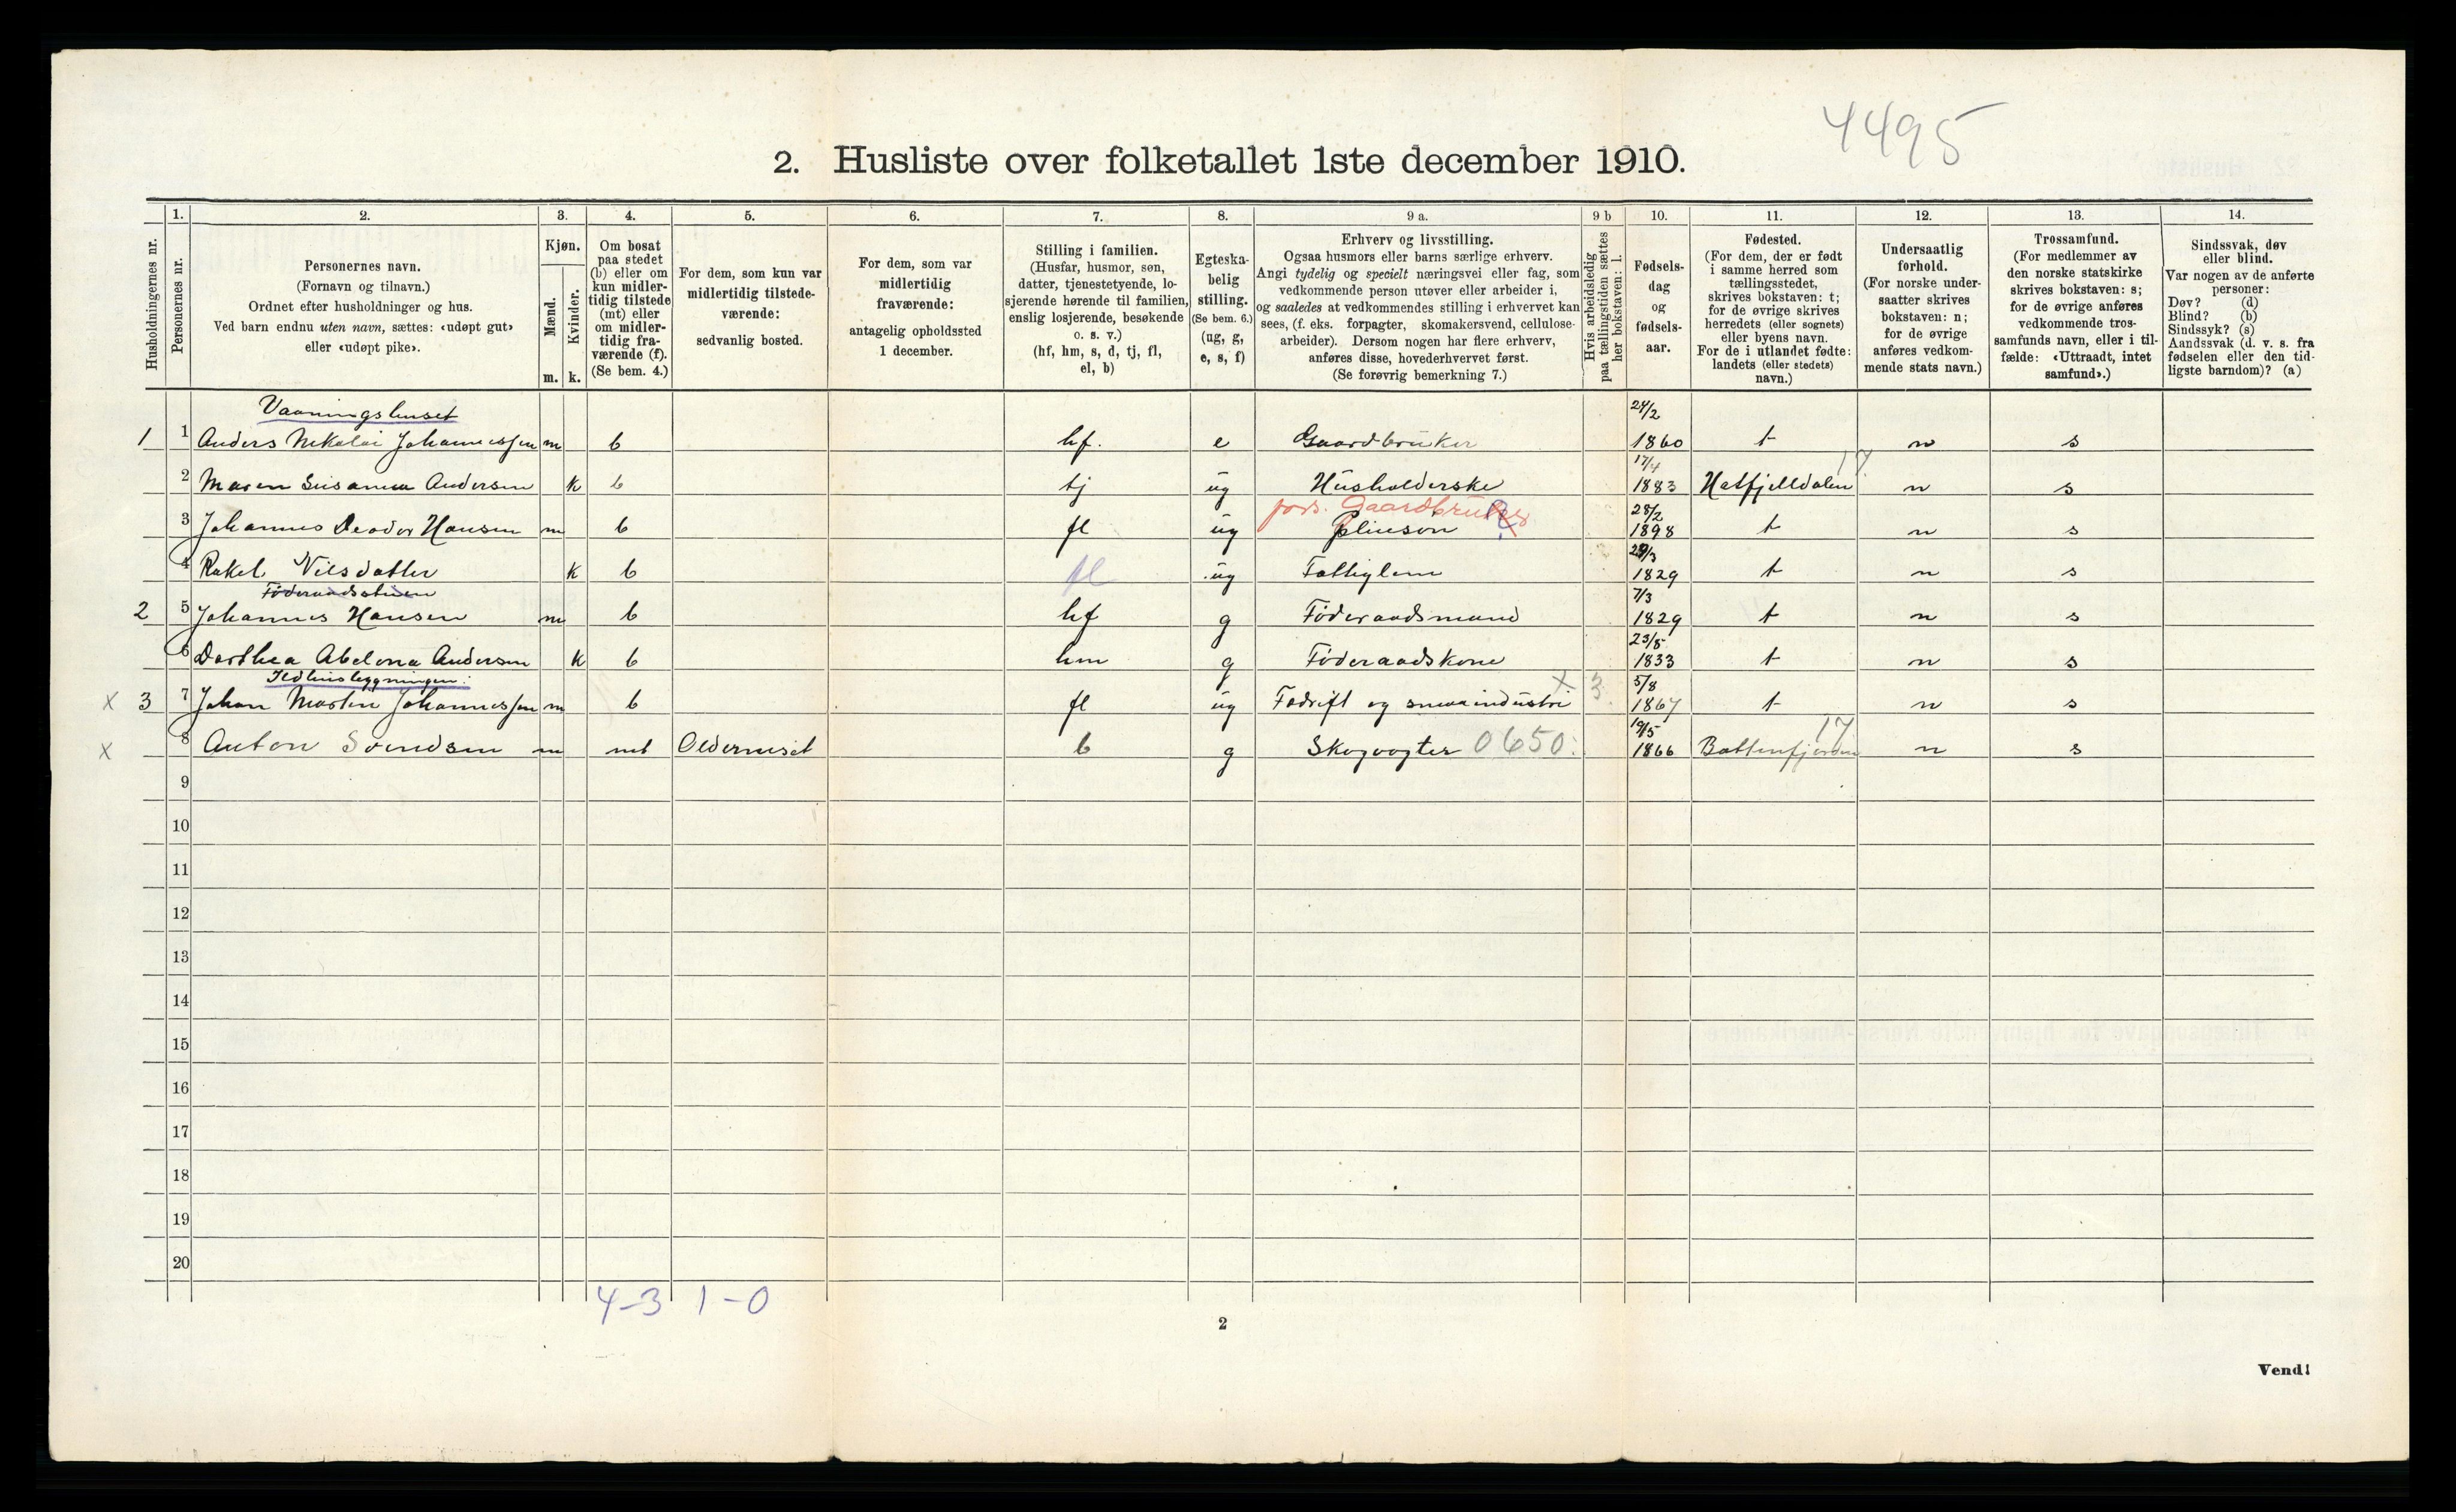 4495
2. Husliste over folketallet 1ste december 1910.
Husholdningernes nr.
1.
Personernes nr.
2.
Personernes navn.
(Fornavn og tilnavn.)
Ordnet efter husholdninger og hus.
Ved barn endnu uten navn, sættes: «udøpt gut»
eller «udøpt pike».
3.
Kjøn.
Mænd.
m.
Kvinder.
k.
4.
Om bosat
paa stedet
(b) eller om
kun midler-
tidig tilstede
(mt) eller
om midler-
tidig fra-
værende (f).
(Se bem. 4.)
5.
For dem, som kun var
midlertidig tilstede-
værende:
sedvanlig bosted.
6.
For dem, som var
midlertidig
fraværende:
antagelig opholdssted
1 december.
7.
Stilling i familien.
(Husfar, husmor, søn,
datter, tjenestetyende, lo-
sjerende hørende til familien,
enslig losjerende, besøkende
o. s. v.)
(hf, hm, s, d, tj, fl,
el, b)
8.
Egteska-
belig
stilling.
(Se bem. 6.)
(ug, g,
e, s, f)
9 a.
Erhverv og livsstilling.
Ogsaa husmors eller barns særlige erhverv.
Angi tydelig og specielt næringsvei eller fag, som
vedkommende person utøver eller arbeider i,
og saaledes at vedkommendes stilling i erhvervet kan
sees, (f. eks. forpagter, skomakersvend, cellulose-
arbeider). Dersom nogen har flere erhverv,
anføres disse, hovederhvervet først.
(Se forøvrig bemerkning 7.)
9 b
Hvis arbeidsledig
paa tællingstiden sættes
her bokstaven: l.
10.
Fødsels-
dag
og
fødsels-
aar.
11.
Fødested.
(For dem, der er født
i samme herred som
tællingsstedet,
skrives bokstaven: t;
for de øvrige skrives
herredets (eller sognets)
eller byens navn.
For de i utlandet fødte:
landets (eller stedets)
navn.)
12.
Undersaatlig
forhold.
(For norske under-
saatter skrives
bokstaven: n;
for de øvrige
anføres vedkom-
mende stats navn.)
13.
Trossamfund.
(For medlemmer av
den norske statskirke
skrives bokstaven: s;
for de øvrige anføres
vedkommende tros-
samfunds navn, eller i til-
fælde: «Uttraadt, intet
samfund».)
14.
Sindssvak, døv
eller blind.
Var nogen av de anførte
personer:
Døv? (d)
Blind? (b)
Sindssyk? (s)
Aandssvak (d. v. s. fra
fødselen eller den tid-
ligste barndom)? (a)
Vaaningshuset
1 1 Anders Nikolai Johannessen m b hf. e Gaardbruker 24/2 1860 t n s
2 Maren Susanna Andersen k b tj ug Husholderske 17/4 1883 Hatfjelldalen 17 n s
fors. Gaardbruker
3 Johannes Hansen m b fl ug Pleiesøn 28/2 1898 t n s
4 Rakel Nilsdatter k b fl ug Fattiglem 1829 t n s
Föderaadsstuen
2 5 Johannes Hansen m b hf g Föderaadsmand 7/3 1829 t n s
6 Dorthea Abelona Andersen k b hm g Föderaadskone 23/5 1833 t n s
x 3 7 Johan Morten Johannessen m b fl ug Fædrift og smaaindustri x 3 5/8 1867 t n s
x 8 Anton Svendsen m mt Olderneset b g Skogvogter 0650. 19/5 1866 Battenfjorden 17 n s
9
10
11
12
13
14
15
16
17
18
19
20
4-3 1-0
2
Vend!